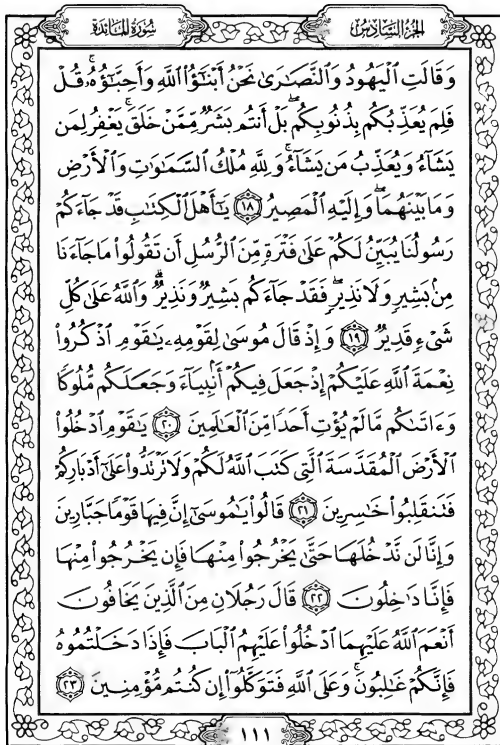 الجزء السادس
سورة المائدة
وَقَالَتِ ٱلْيَهُودُ وَٱلنَّصَٰرَىٰ نَحْنُ أَبْنَٰٓؤُا۟ ٱللَّهِ وَأَحِبَّٰٓؤُهُۥۚ قُلْ
فَلِمَ يُعَذِّبُكُم بِذُنُوبِكُمۖ بَلْ أَنتُم بَشَرٌ مِّمَّنْ خَلَقَۚ يَغْفِرُ لِمَن
يَشَآءُ وَيُعَذِّبُ مَن يَشَآءُۚ وَلِلَّهِ مُلْكُ ٱلسَّمَٰوَٰتِ وَٱلْأَرْضِ
وَمَا بَيْنَهُمَاۖ وَإِلَيْهِ ٱلْمَصِيرُ ١٨ يَٰٓأَهْلَ ٱلْكِتَٰبِ قَدْ جَآءَكُمْ
رَسُولُنَا يُبَيِّنُ لَكُمْ عَلَىٰ فَتْرَةٍ مِّنَ ٱلرُّسُلِ أَن تَقُولُوا۟ مَا جَآءَنَا
مِنۢ بَشِيرٍ وَلَا نَذِيرٍۖ فَقَدْ جَآءَكُم بَشِيرٌ وَنَذِيرٌۗ وَٱللَّهُ عَلَىٰ كُلِّ
شَىْءٍ قَدِيرٌ ١٩ وَإِذْ قَالَ مُوسَىٰ لِقَوْمِهِۦ يَٰقَوْمِ ٱذْكُرُوا۟
نِعْمَةَ ٱللَّهِ عَلَيْكُمْ إِذْ جَعَلَ فِيكُمْ أَنۢبِيَآءَ وَجَعَلَكُم مُّلُوكًا
وَءَاتَىٰكُم مَّا لَمْ يُؤْتِ أَحَدًا مِّنَ ٱلْعَٰلَمِينَ ٢٠ يَٰقَوْمِ ٱدْخُلُوا۟
ٱلْأَرْضَ ٱلْمُقَدَّسَةَ ٱلَّتِى كَتَبَ ٱللَّهُ لَكُمْ وَلَا تَرْتَدُّوا۟ عَلَىٰٓ أَدْبَارِكُمْ
فَتَنقَلِبُوا۟ خَٰسِرِينَ ٢١ قَالُوا۟ يَٰمُوسَىٰٓ إِنَّ فِيهَا قَوْمًا جَبَّارِينَ
وَإِنَّا لَن نَّدْخُلَهَا حَتَّىٰ يَخْرُجُوا۟ مِنْهَا فَإِن يَخْرُجُوا۟ مِنْهَا
فَإِنَّا دَٰخِلُونَ ٢٢ قَالَ رَجُلَانِ مِنَ ٱلَّذِينَ يَخَافُونَ
أَنْعَمَ ٱللَّهُ عَلَيْهِمَا ٱدْخُلُوا۟ عَلَيْهِمُ ٱلْبَابَ فَإِذَا دَخَلْتُمُوهُ
فَإِنَّكُمْ غَٰلِبُونَۚ وَعَلَى ٱللَّهِ فَتَوَكَّلُوٓا۟ إِن كُنتُم مُّؤْمِنِينَ ٢٣
١١١